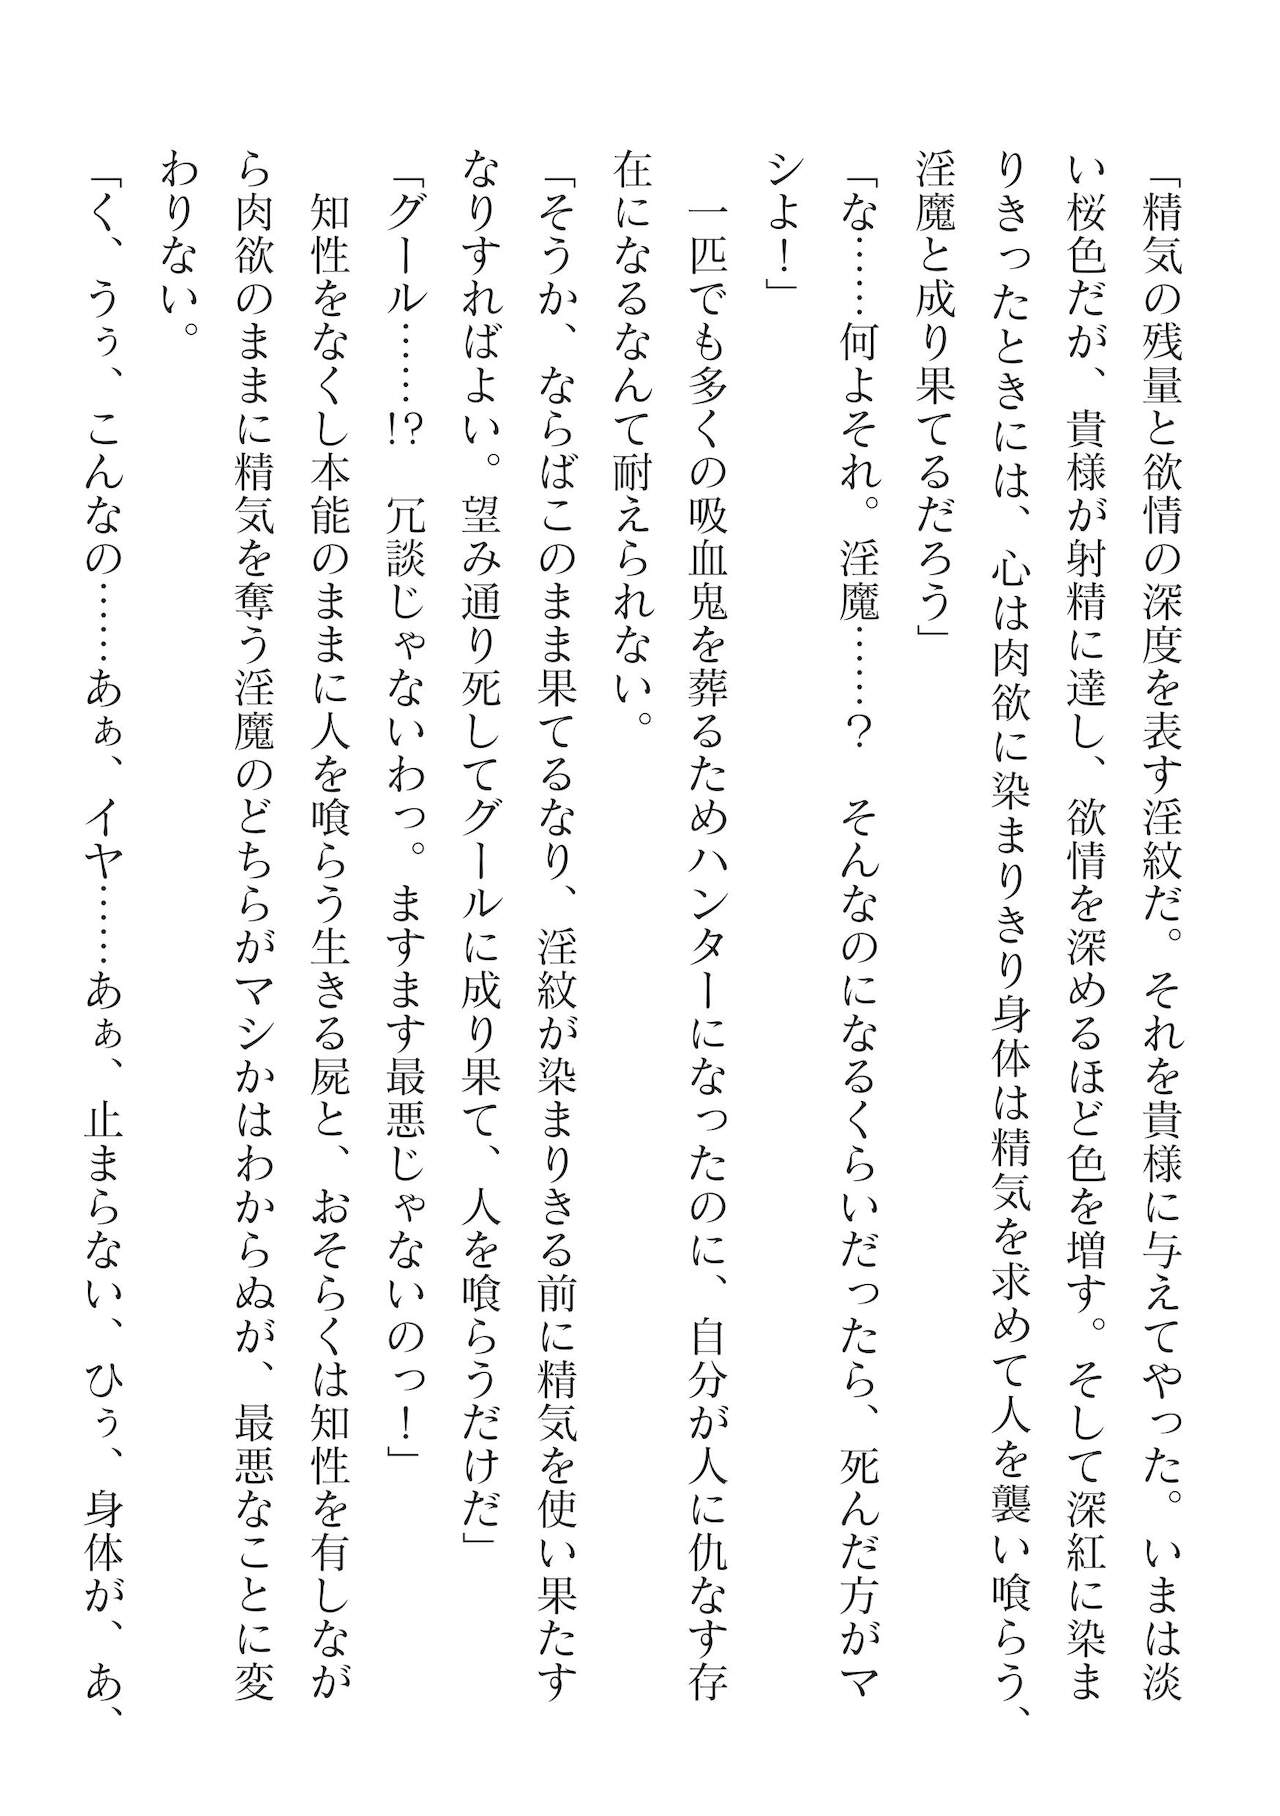 「精気の残量と欲情の深度を表す淫紋だ。それを貴様に与えてやった。いまは淡
い桜色だが、貴様が射精に達し、欲情を深めるほど色を増す。そして深紅に染ま
りきったときには、心は肉欲に染まりきり身体は精気を求めて人を襲い喰らう、
淫魔と成り果てるだろう」
「な……何よそれ。淫魔……？　そんなのになるくらいだったら、死んだ方がマ
シよ！」
　一匹でも多くの吸血鬼を葬るためハンターになったのに、自分が人に仇なす存
在になるなんて耐えられない。
「そうか、ならばこのまま果てるなり、淫紋が染まりきる前に精気を使い果たす
なりすればよい。望み通り死してグールに成り果て、人を喰らうだけだ」
「グール……!?　冗談じゃないわっ。ますます最悪じゃないのっ！」
　知性をなくし本能のままに人を喰らう生きる屍と、おそらくは知性を有しなが
ら肉欲のままに精気を奪う淫魔のどちらがマシかはわからぬが、最悪なことに変
わりない。
「く、うぅ、こんなの……あぁ、イヤ……あぁ、止まらない、ひぅ、身体が、あ、